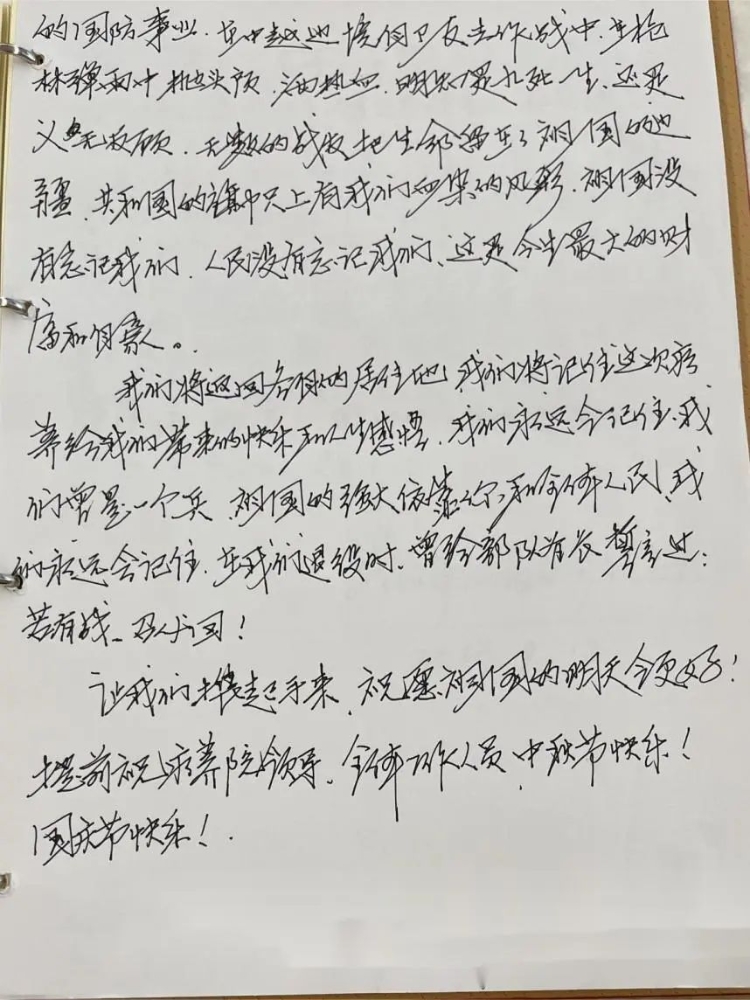 的国防事业.在中越边境自卫反击作战中.在枪
林弹雨中抛头颅,洒热血.明知是九死一生.还是
义无反顾.无数的战友把生命留在了祖国的边
疆.共和国的旗帜上有我们血染的风彩.祖国没
有忘记我们.人民没有忘记我们、这是今生最大的财
富和自豪。
我们将返回各自的居住地.我们将记住这次疗
养给我们带来的快乐和人生感悟.我们永远会记住.我
们曾是一个兵.祖国的强大依靠你、和全体人民.我
们永远会记住.在我们退役时.曾给部队首长誓言过:
若有战、召必回!
让我们携起手来.祝愿祖国的明天会更好!
提前祝疗养院领导、全体工作人员.中秋节快乐!
国庆节快乐!